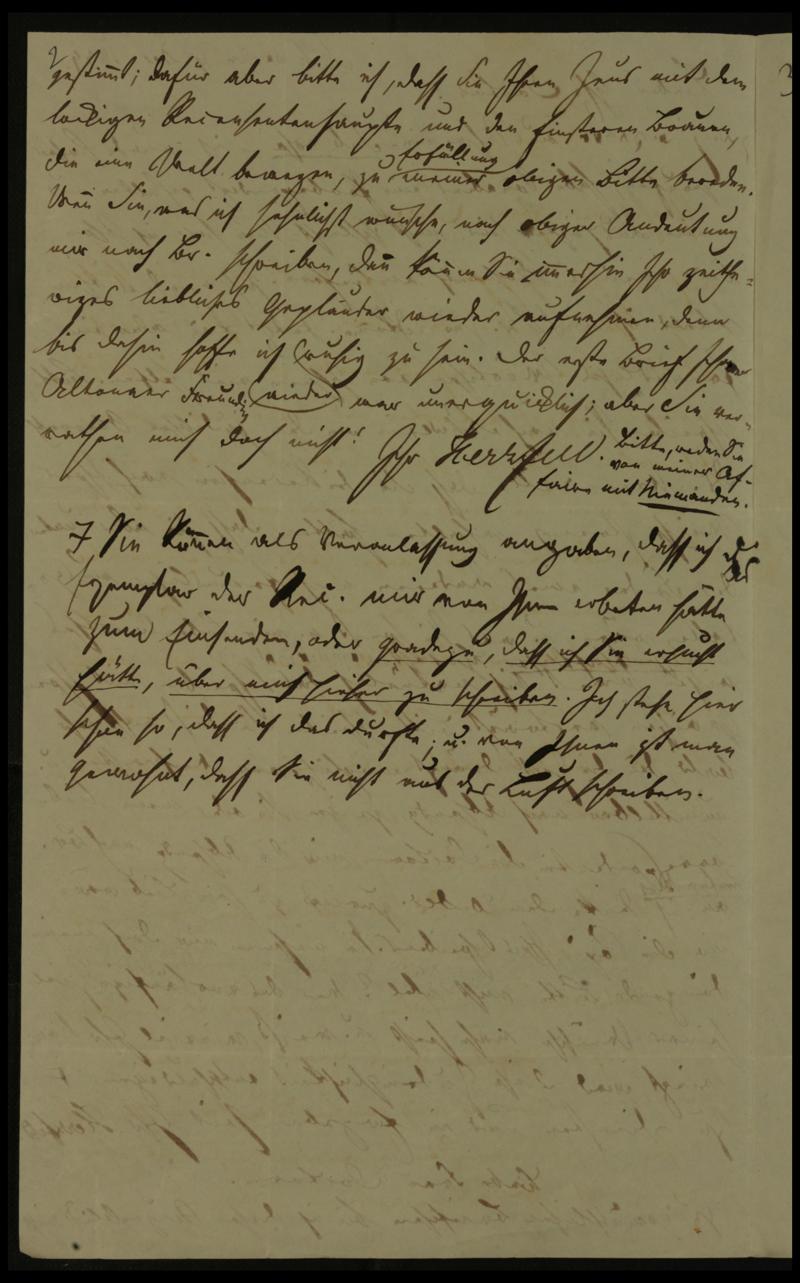 gestimt; dafür aber bitte ich, dass Sie Ihren Zeus mit dem
lockigen Recensentenhaupte und den finsteren Brauen,
die eine Welt bewegen, zu Erfüllung meiner obigen Bitte bereden.
Wen Sie, was ich sehnlichst wünsche, nach obiger Andeutung
mir nach Br. schreiben, dan könen Sie imerhin Ihr zeithe-
riges liebliches Geplauder wieder aufnehmen, denn
bis dahin hoffe ich ruhig zu sein. Der erste Brief Ihrer
Altonaer Freundin wieder war unerquicklich; aber Sie ver-
rathen mich doch nicht! Ihr
Bitte, reden Sie
von meiner Af-
faire mit Niemanden.
7 Sie könen als Veranlassung angeben, dass ich das
Exemplar der Rec. mir von Ihnen erbeten hätte
zum Einsenden, oder geradezu, dass ich Sie ersucht
hätte, über mich hieher zu schreiben. Ich stehe hier
schon so, dass ich das durfte; u. von Ihnen ist man
gewohnt, dass Sie nicht aus der Luft schreiben.